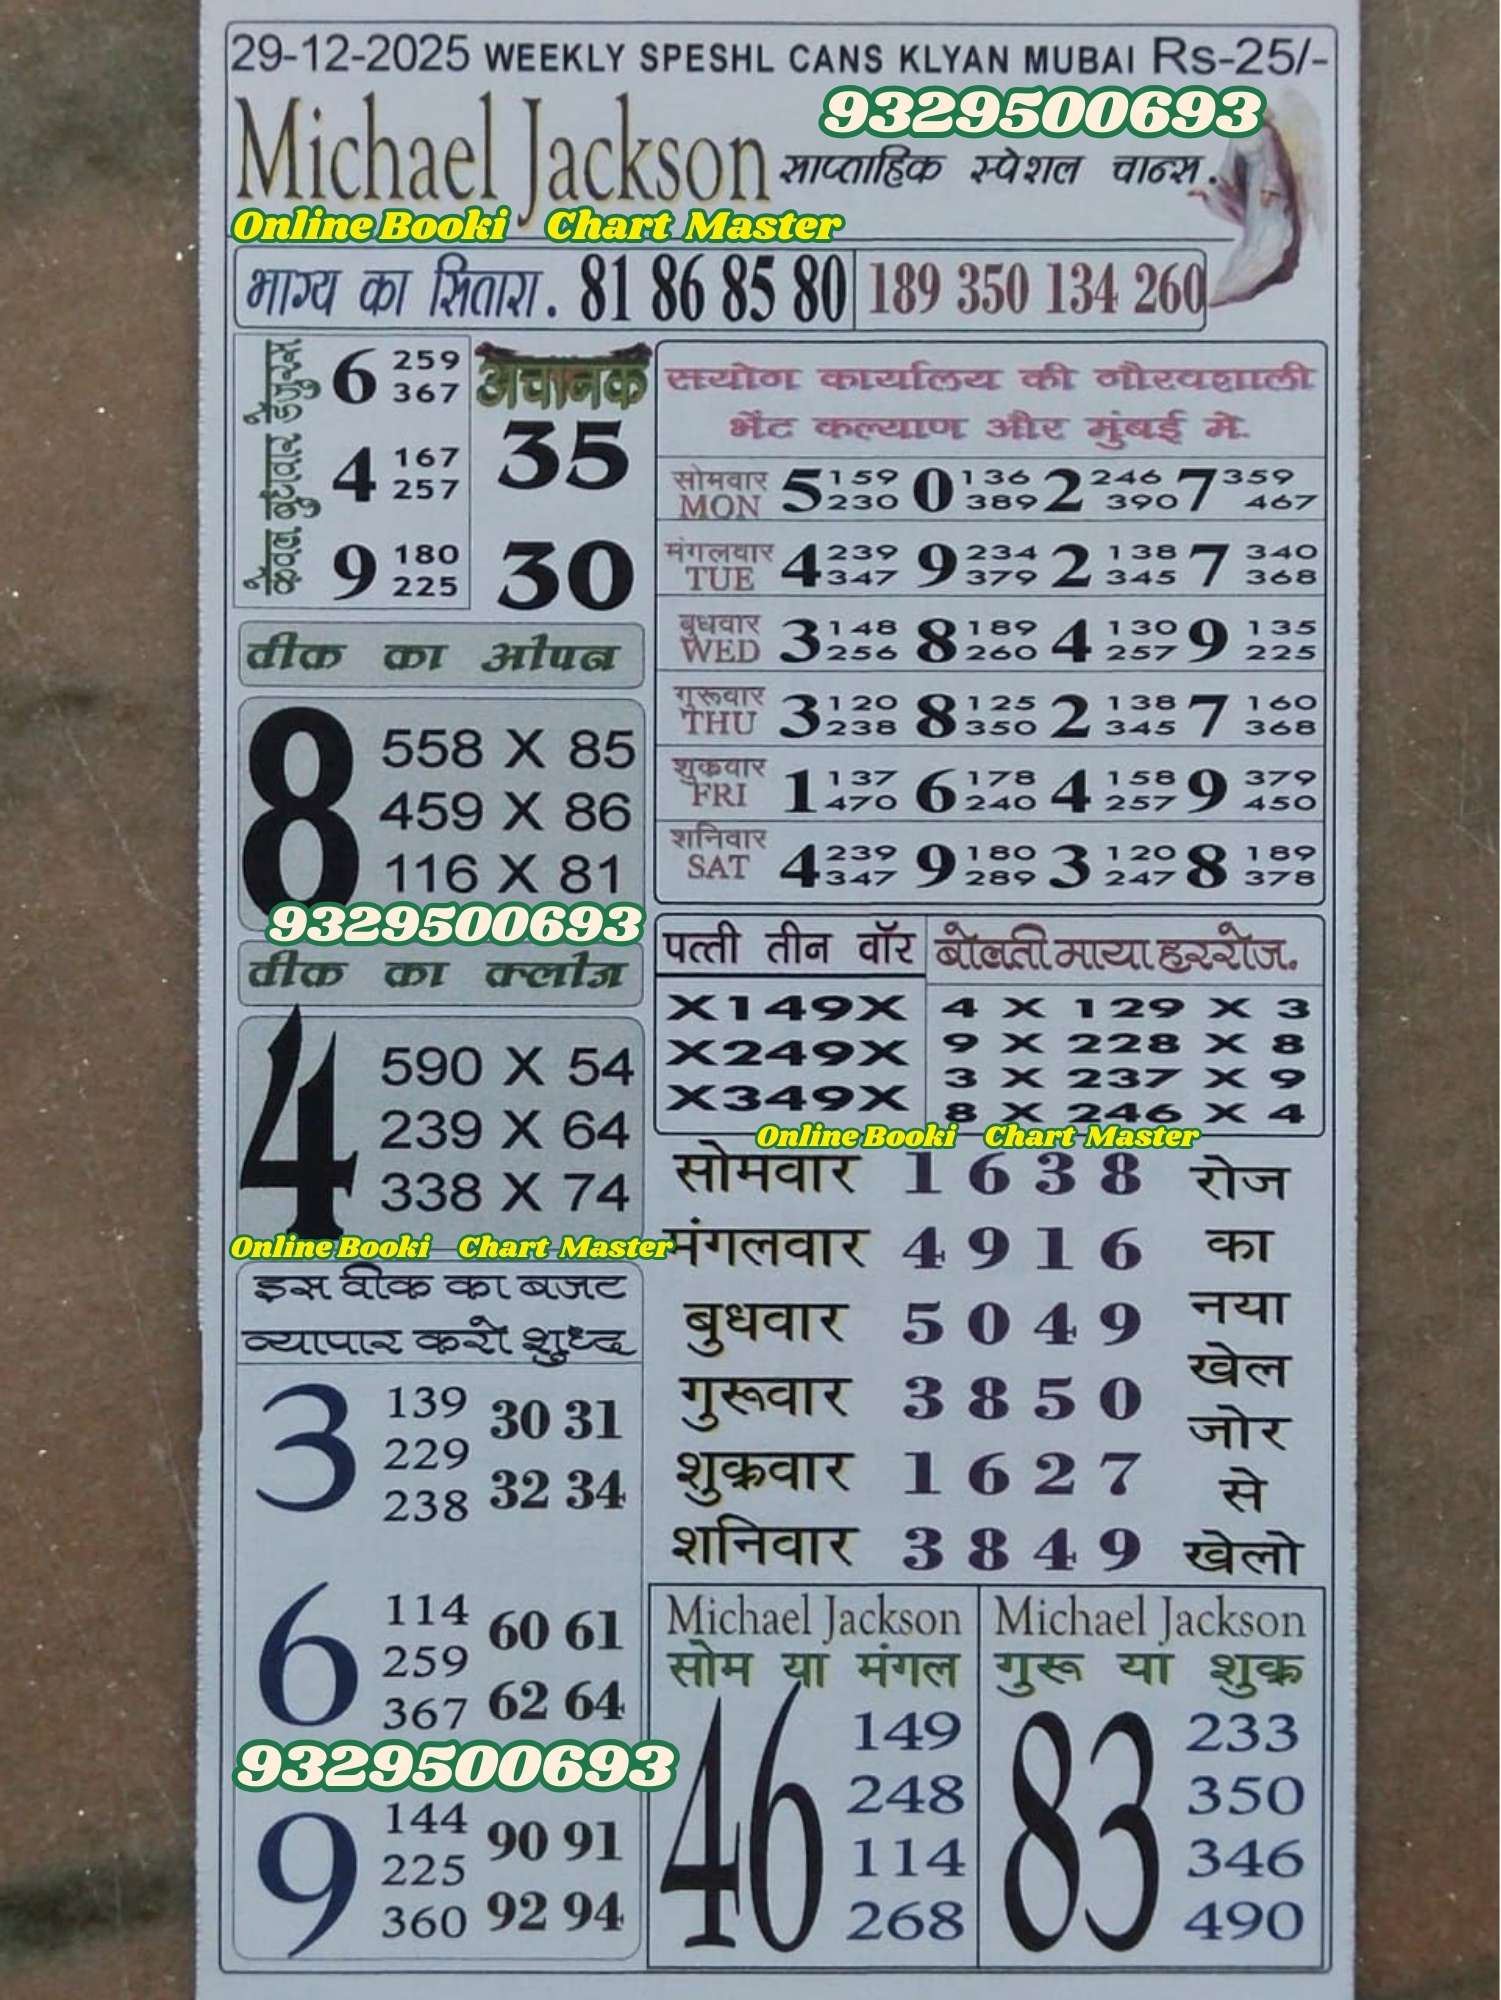 29-12-2025 WEEKLY SPESHL CANS KLYAN MUBAI Rs-25/-
9329500693
Michael Jackson साप्ताहिक स्पेशल चान्स.
Online Booki Chart Master
भाग्य का सितारा. 81 86 85 80 189 350 134 260
केवल बुधवार हैगुरुस
6 259
367
4 167
257
9 180
225
अचानक
35
30
सयोग कार्यालय की गौरवशाली
भेंट कल्याण और मुंबई मे.
सोमवार MON 5 159 230 0 136 389 2 246 390 7 359 467
मंगलवार TUE 4 239 347 9 234 379 2 138 345 7 340 368
बुधवार WED 3 148 256 8 189 260 4 130 257 9 135 225
गुरूवार THU 3 120 238 8 125 350 2 138 345 7 160 368
शुक्रवार FRI 1 137 470 6 178 240 4 158 257 9 379 450
शनिवार SAT 4 239 347 9 180 289 3 120 247 8 189 378
वीक का ओपन
8
558 X 85
459 X 86
116 X 81
9329500693
वीक का क्लोज
4
590 X 54
239 X 64
338 X 74
Online Booki Chart Master
पत्ती तीन वॉर
X149X
X249X
X349X
बोलती माया हररोज.
4 X 129 X 3
9 X 228 X 8
3 X 237 X 9
8 X 246 X 4
Online Booki Chart Master
सोमवार 1 6 3 8
मंगलवार 4 9 1 6
बुधवार 5 0 4 9
गुरूवार 3 8 5 0
शुक्रवार 1 6 2 7
शनिवार 3 8 4 9
रोज
का
नया
खेल
जोर
से
खेलो
इस वीक का बजट
व्यापार करो शुध्द
3
139 30 31
229
238 32 34
6
114 60 61
259
367 62 64
9329500693
9
144 90 91
225
360 92 94
Michael Jackson
सोम या मंगल
46
149
248
114
268
Michael Jackson
गुरू या शुक्र
83
233
350
346
490